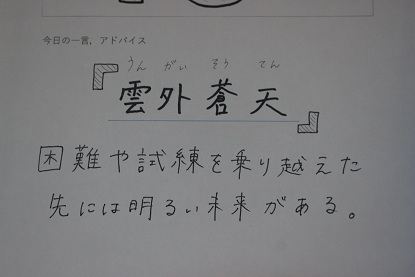 今日の一言，アドバイス
うん がい そう てん
『雲外蒼天』
困難や試練を乗り越えた
先には明るい未来がある。